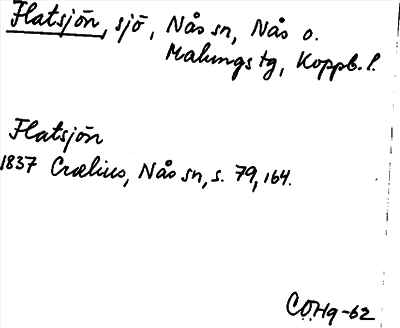 Flatsjön, sjö, Nås sn, Nås o.
Malungs tg, Koppb. l.
Flatsjön
1837 Crælius, Nås sn, s. 79, 164.
CÖHg-62